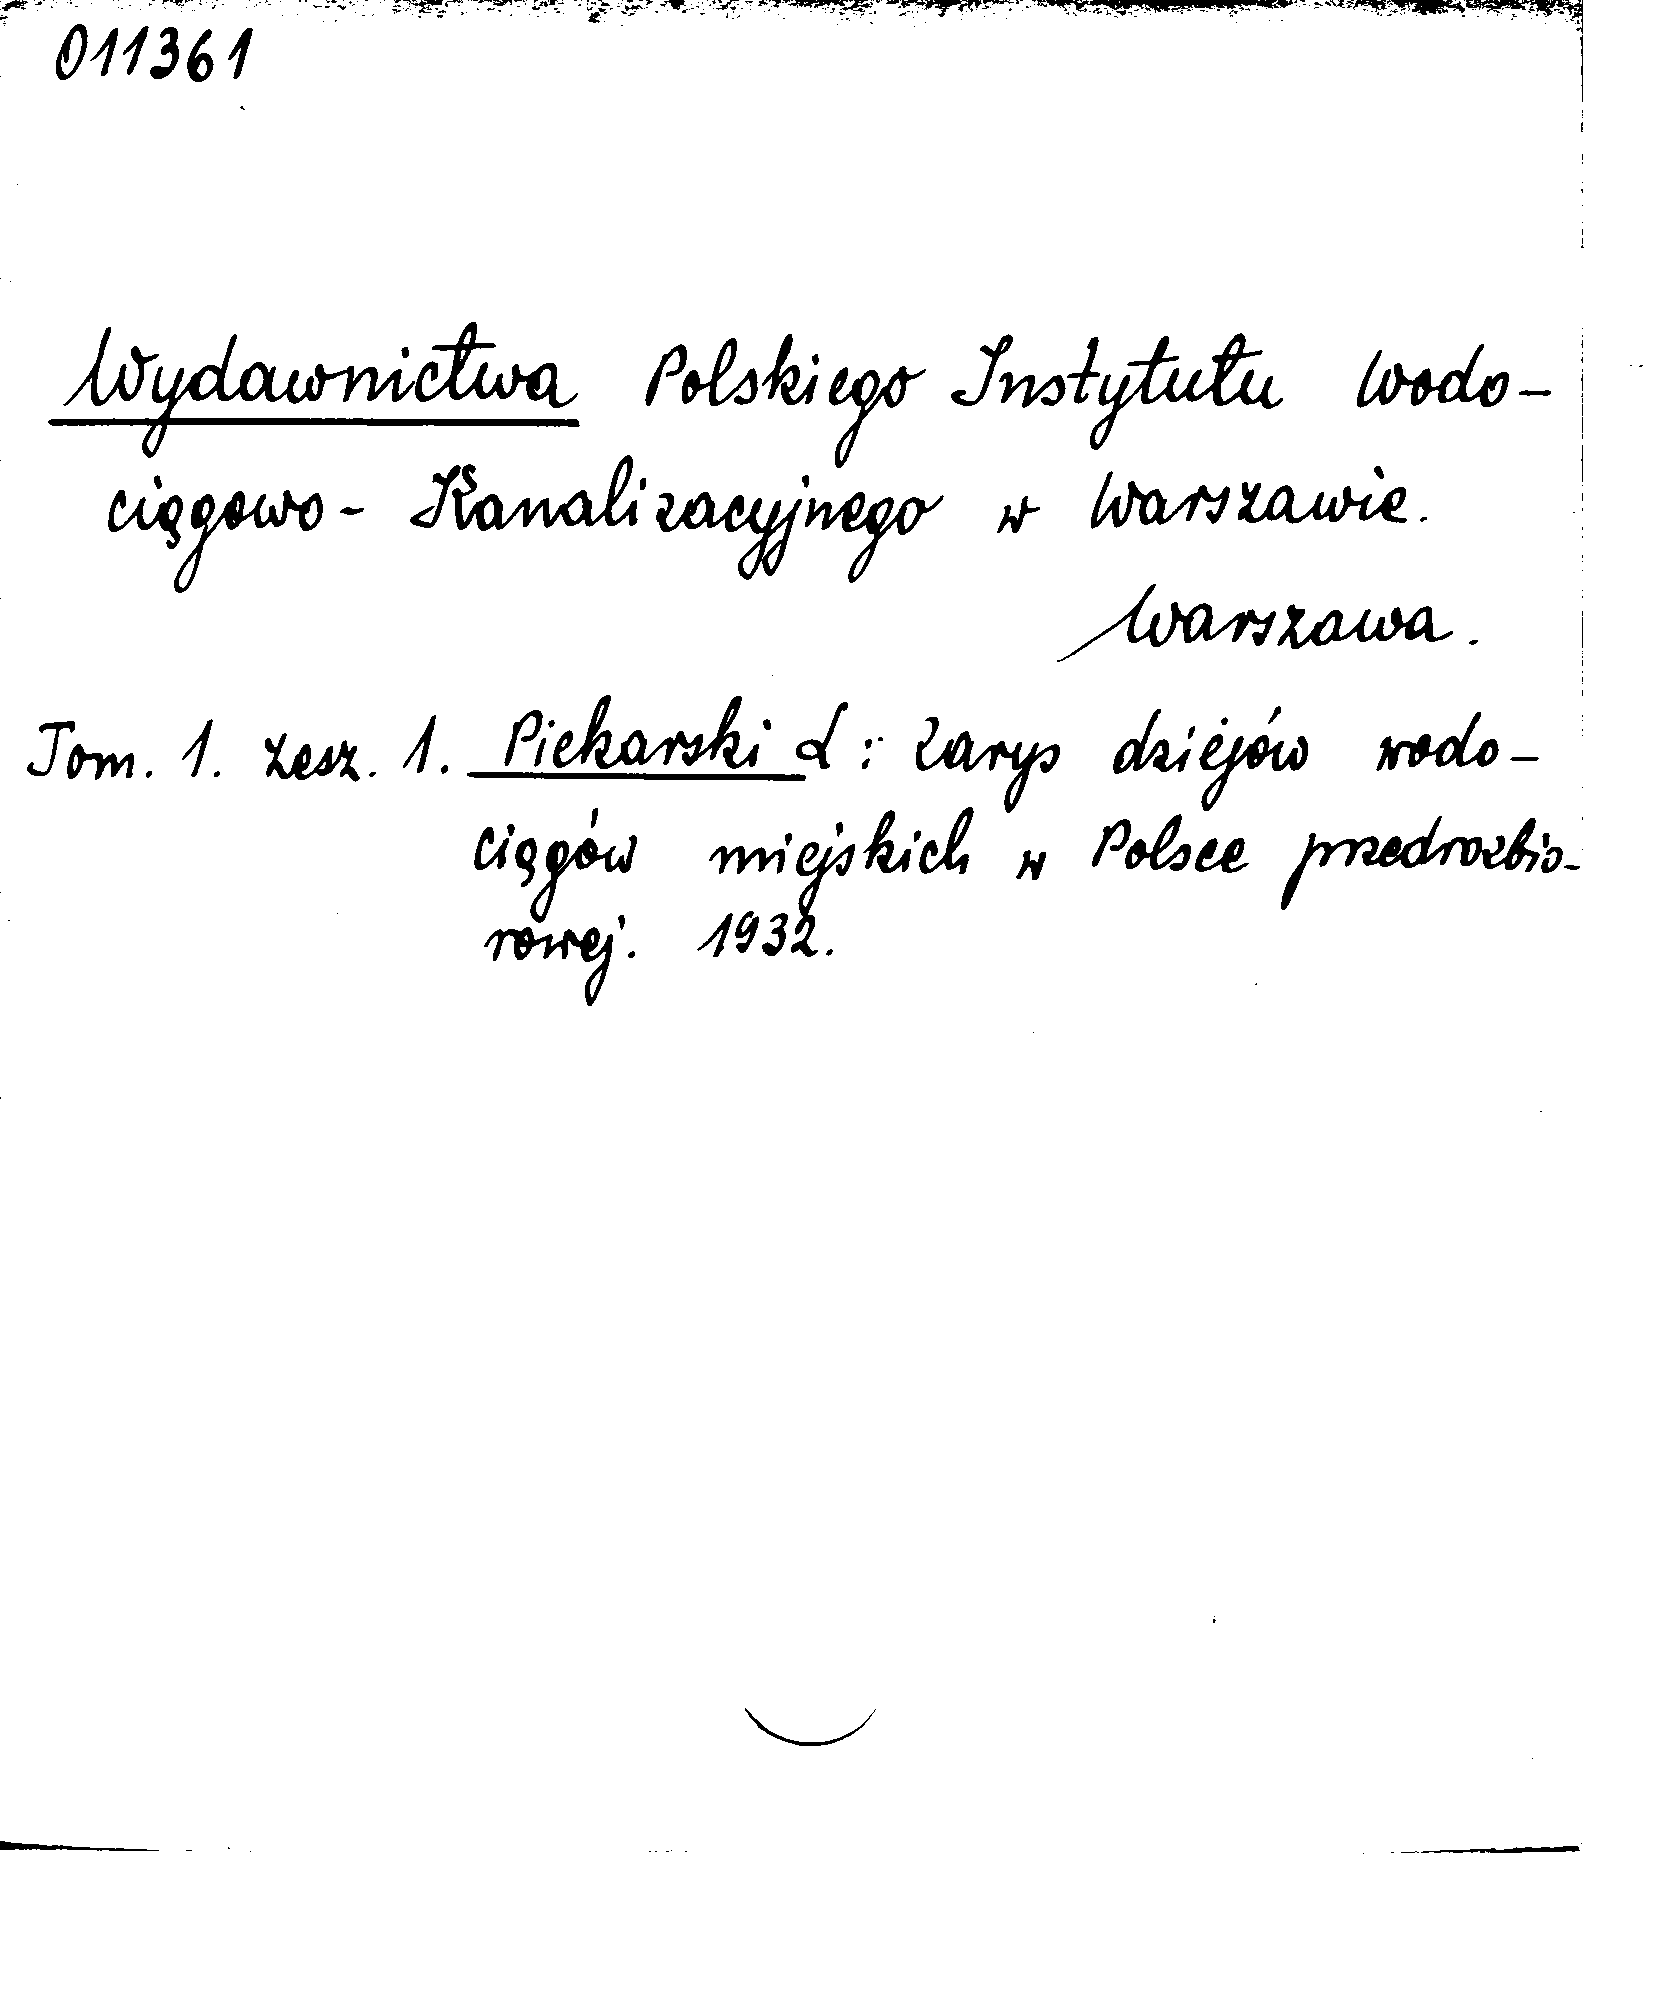 011361
Wydawnictwa Polskiego Instytutu Wodo-
ciągowo-Kanalizacyjnego w Warszawie.
Warszawa.
Tom. 1. zesz. 1. Piekarski L: Zarys dziejów wodo-
ciągów miejskich w Polsce przedrozbio-
rowej. 1932.